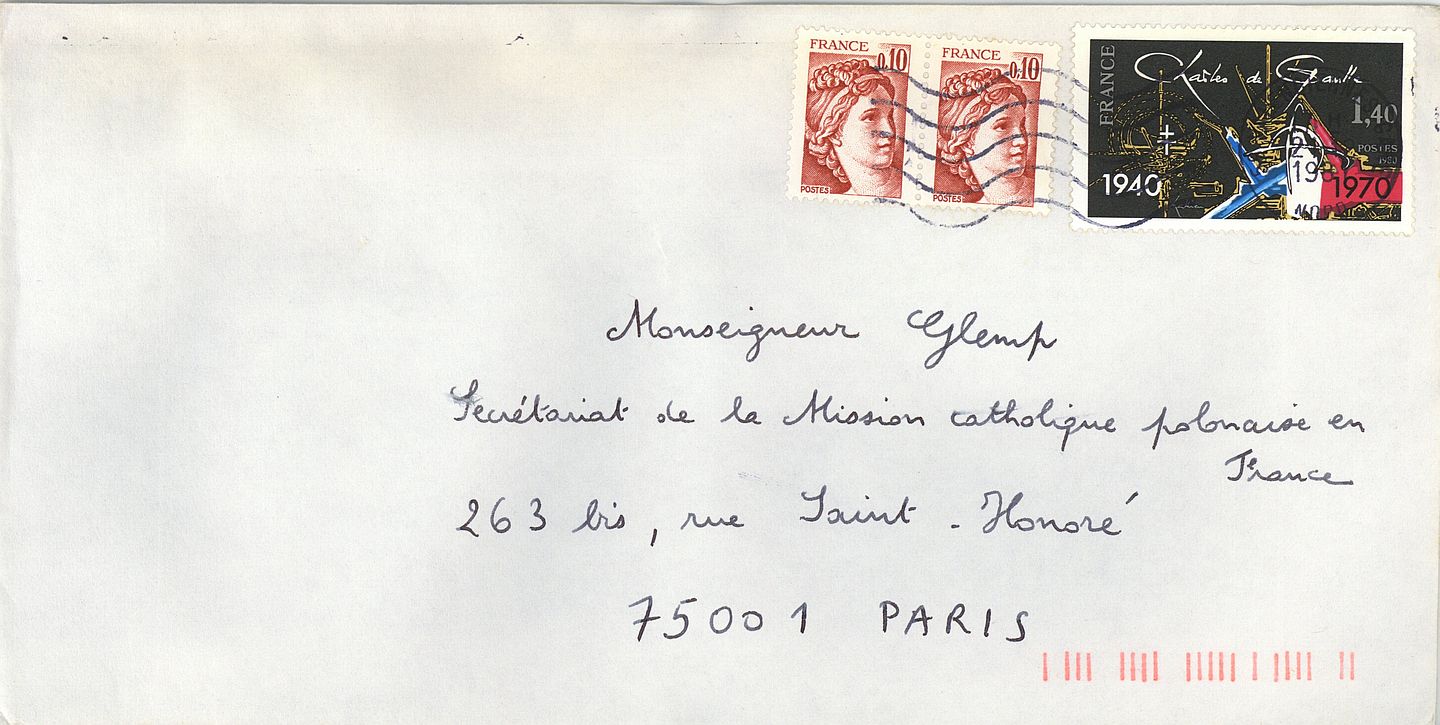 FRANCE 0,10
POSTES
FRANCE 0,10
POSTES
FRANCE
Charles de Gaulle
1,40
POSTES
1980
1940
1970
Monseigneur Glemp
Secrétariat de la Mission catholique polonaise en
France
263 bis, rue Saint-Honoré
75001 PARIS